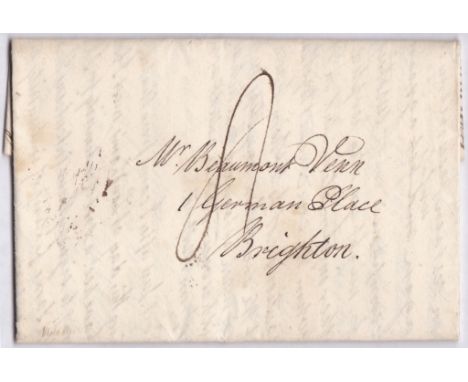 Mr. Beaumont Venn
1 German Place
Brighton.